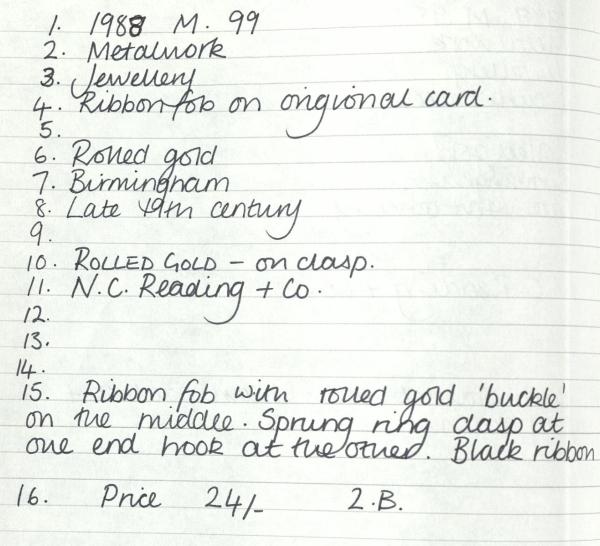 1. 1988 M. 99
2. Metalwork
3. Jewellery
4. Ribbon fob on origional card.
5.
6. Rolled gold
7. Birmingham
8. Late 19th century
9.
10. ROLLED GOLD - on clasp.
11. N.C. Reading + Co.
12.
13.
14.
15. Ribbon fob with rolled gold 'buckle'
on the middle. Sprung ring clasp at
one end hook at the other. Black ribbon
16. Price 24/- 2.B.